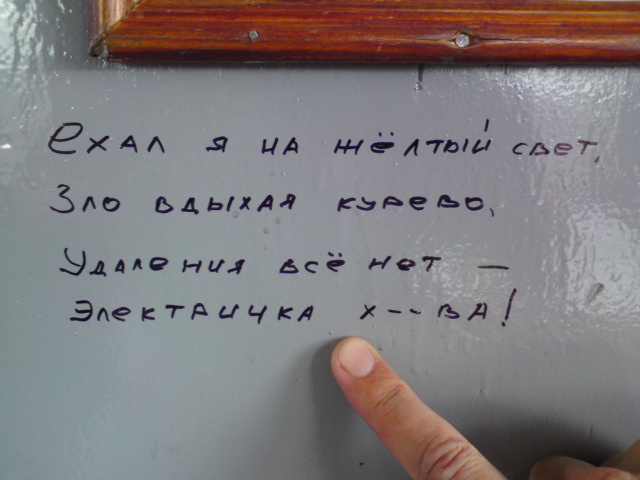 Ехал я на жёлтый свет,
Зло вдыхая курево,
Удаления всё нет —
Электричка х--ва!